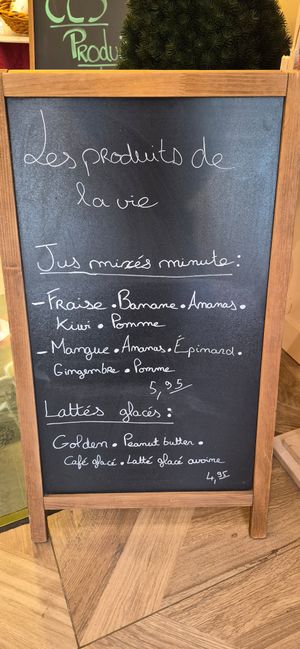 Produ
Les produits de
la vie
Jus mixés minute :
- Fraise • Banane • Ananas •
Kiwi • Pomme
- Mangue • Ananas • Épinard •
Gingembre • Pomme
5,95
Lattés glacés :
Golden • Peanut butter •
Café glacé • Latté glacé avoine
4,95